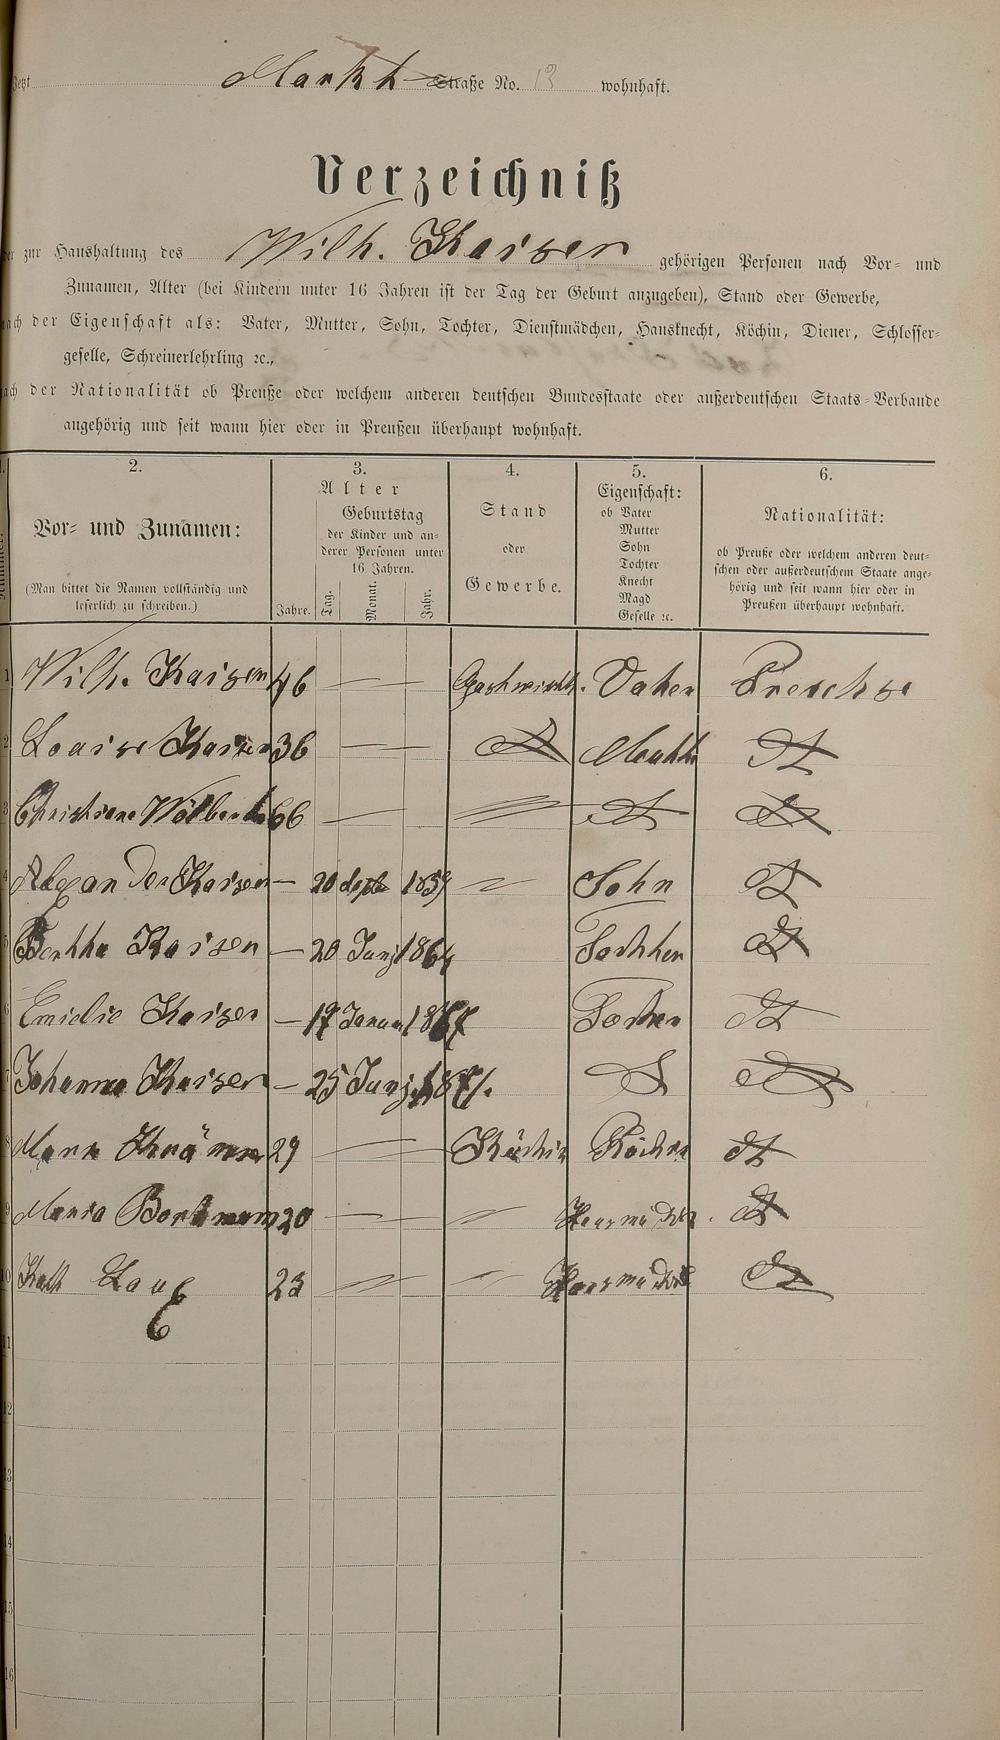 Jetzt Markt Straße No. 13 wohnhaft.
Verzeichniß
der zur Haushaltung des Wilh. Kaiser gehörigen Personen nach Vor- und
Zunamen, Alter (bei Kindern unter 16 Jahren ist der Tag der Geburt anzugeben), Stand oder Gewerbe,
nach der Eigenschaft als: Vater, Mutter, Sohn, Tochter, Dienstmädchen, Hausknecht, Köchin, Diener, Schlosser-
geselle, Schreinerlehrling ꝛc.,
nach der Nationalität ob Preuße oder welchem anderen deutschen Bundesstaate oder außerdeutschen Staats-Verbande
angehörig und seit wann hier oder in Preußen überhaupt wohnhaft.
1. 2. 3. 4. 5. 6.
Nummer:
Vor- und Zunamen:
(Man bittet die Namen vollständig und
leserlich zu schreiben.)
Alter
Jahre.
Geburtstag
der Kinder und an-
derer Personen unter
16 Jahren.
Tag. Monat. Jahr.
Stand
oder
Gewerbe.
Eigenschaft:
ob Vater
Mutter
Sohn
Tochter
Knecht
Magd
Geselle ꝛc.
Nationalität:
ob Preuße oder welchem anderen deut-
schen oder außerdeutschem Staate ange-
hörig und seit wann hier oder in
Preußen überhaupt wohnhaft.
1 Wilh. Kaiser 46 — — Gastwirth. Vater
2 Louise Kaiser 36 — —
3 Christiane 66 —
4 Alexander Kaiser — 20 Sept 1859 Sohn
5 Bertha Kaiser — 20 Juni 1864 Tochter
6 Emielie Kaiser — 17 Januar 1867
7 Johanna Kaiser — 25 Juni 1871.
8 29 — Köchin Köchin
9 Maria 20 —
10 Kath 23
11
12
13
14
15
16